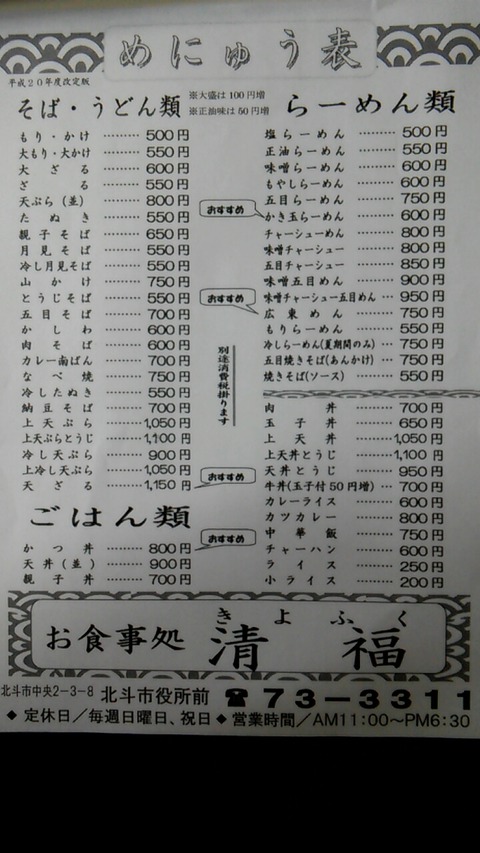 めにゅう表
平成20年度改定版
そば・うどん類
※大盛は100円増
※正油味は50円増
もり・かけ ……… 500円
大もり・大かけ ……… 550円
大ざる ……… 600円
ざる ……… 550円
天ぷら（並） ……… 800円
たぬき ……… 550円
親子そば ……… 650円
月見そば ……… 550円
冷し月見そば ……… 550円
山かけ ……… 750円
とうじそば ……… 550円
五目そば ……… 700円
かしわ ……… 600円
肉そば ……… 600円
カレー南ばん ……… 700円
なべ焼 ……… 750円
冷したぬき ……… 550円
納豆そば ……… 700円
上天ぷら ……… 1,050円
上天ぷらとうじ ……… 1,100円
冷し天ぷら ……… 900円
上冷し天ぷら ……… 1,050円
天ざる ……… 1,150円
おすすめ
ごはん類
かつ丼 ……… 800円
おすすめ
天丼（並） ……… 900円
親子丼 ……… 700円
別途消費税掛ります
らーめん類
塩らーめん ……… 500円
正油らーめん ……… 550円
味噌らーめん ……… 600円
もやしらーめん ……… 600円
五目らーめん ……… 750円
おすすめ
かき玉らーめん ……… 600円
チャーシューめん ……… 800円
味噌チャーシュー ……… 800円
五目チャーシュー ……… 850円
味噌五目めん ……… 900円
味噌チャーシュー五目めん … 950円
おすすめ
広東めん ……… 750円
もりらーめん ……… 550円
冷しらーめん(夏期間のみ) … 750円
五目焼きそば(あんかけ) … 750円
焼きそば(ソース) ……… 550円
肉丼 ……… 700円
玉子丼 ……… 650円
上天丼 ……… 1,050円
上天丼とうじ ……… 1,100円
天丼とうじ ……… 950円
牛丼(玉子付50円増) … 700円
カレーライス ……… 600円
カツカレー ……… 800円
中華飯 ……… 750円
チャーハン ……… 600円
ライス ……… 250円
小ライス ……… 200円
きよふく
お食事処 清福
北斗市中央2-3-8 北斗市役所前 ☎73-3311
◆定休日／毎週日曜日、祝日◆営業時間／AM11:00〜PM6:30